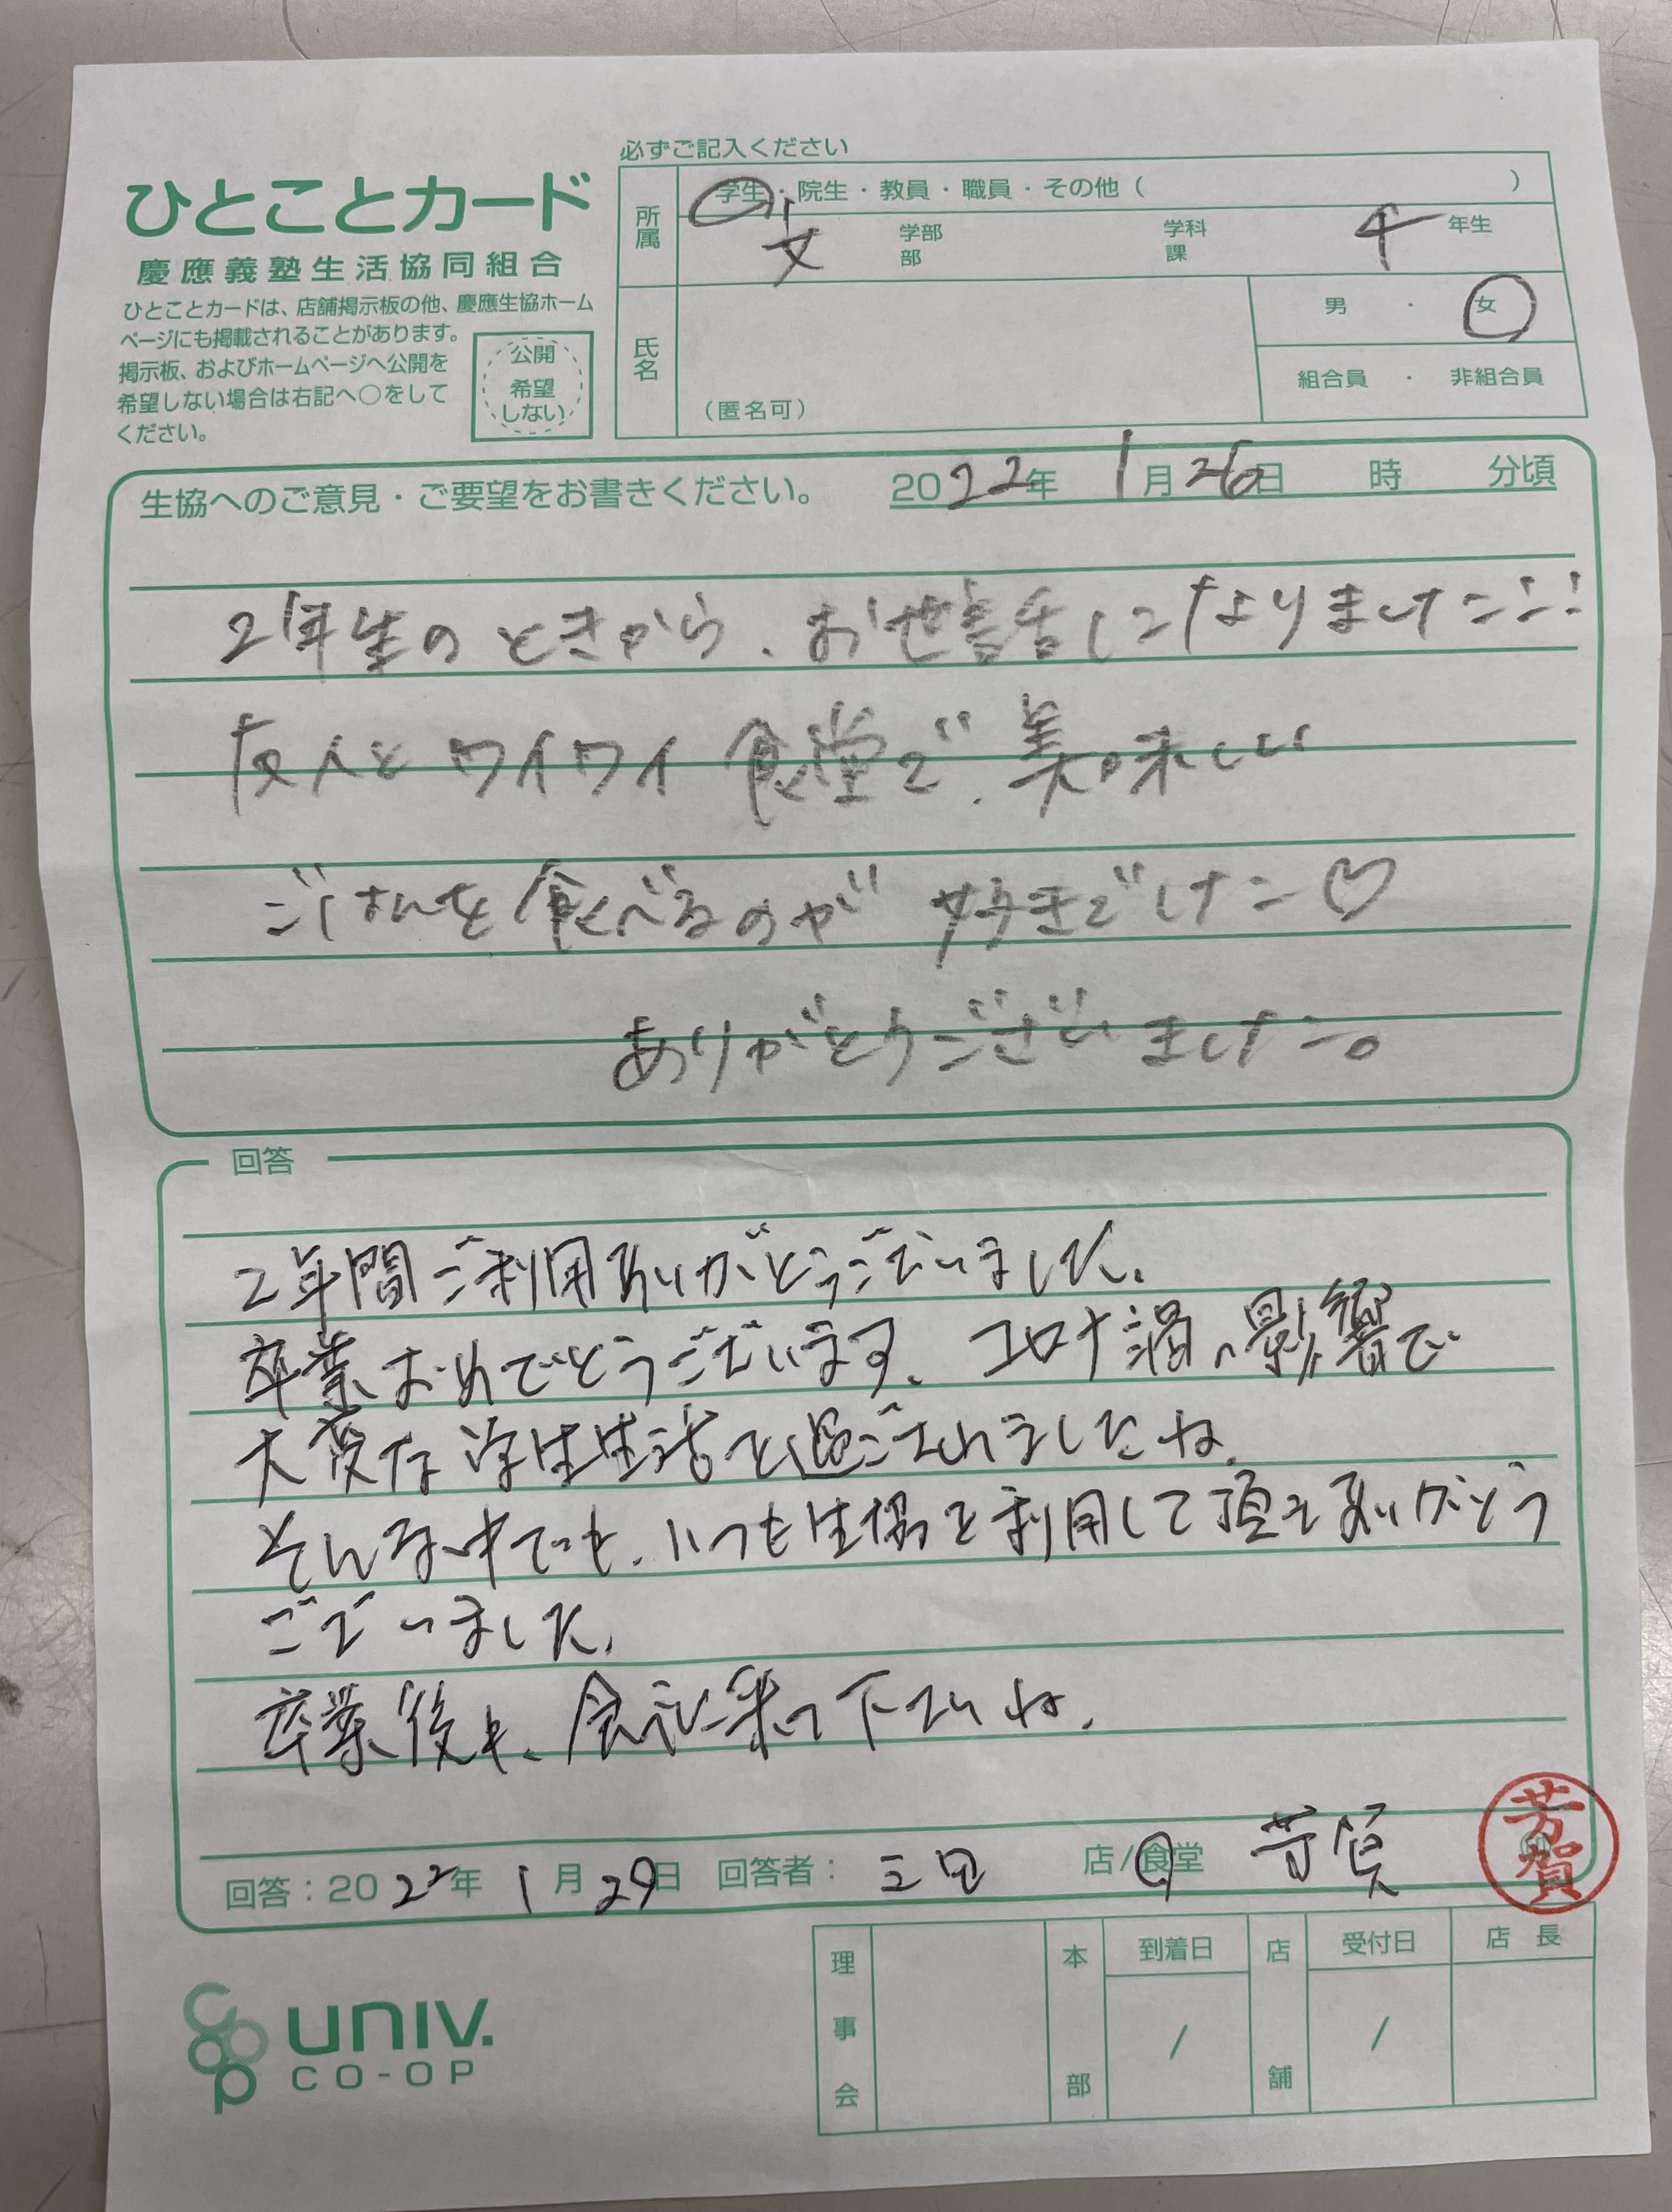 必ずご記入ください
ひとことカード
慶應義塾生活協同組合
ひとことカードは、店舗掲示板の他、慶應生協ホーム
ページにも掲載されることがあります。
掲示板、およびホームページへ公開を
希望しない場合は右記へ○をして
ください。
公開
希望
しない
所属
学生・院生・教員・職員・その他（ ）
文 学部 学科 4 年生
部 課
氏名
（匿名可）
男 ・ 女
組合員 ・ 非組合員
生協へのご意見・ご要望をお書きください。 2022年 1月26日 時 分頃
2年生のときから、お世話になりました
友人とワイワイ食堂で、美味しい
ごはんを食べるのが好きでした♡
ありがとうございました。
回答
2年間ご利用ありがとうございました。
卒業おめでとうございます。コロナ渦の影響で
大変な学生生活を過ごされましたね。
そんな中でも、いつも生協を利用して頂きありがとう
ございました。
卒業後も、食べに来て下さいね。
回答：2022年 1月29日 回答者： 三田 店/食堂 芳賀
芳賀
理事会
本部
到着日
/
店舗
受付日
/
店長
coop
UNIV.
CO-OP